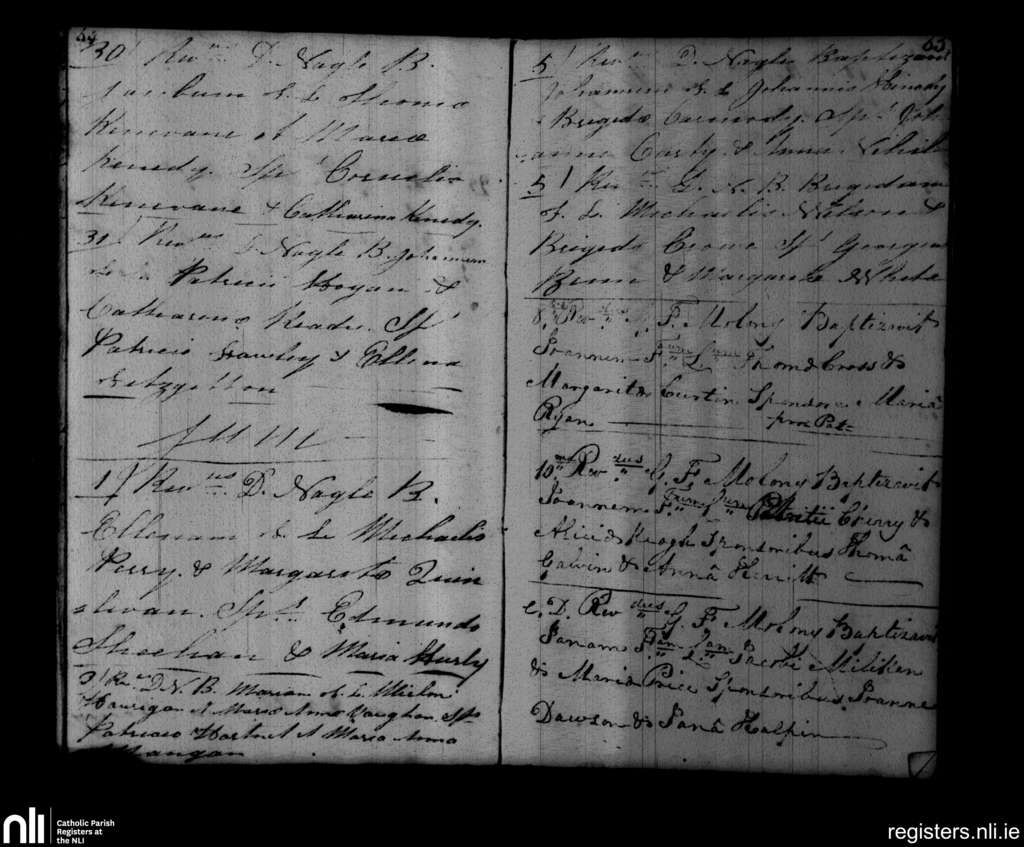 30 Revus D. Nagle B.
Jacobum f. L. Thomæ
Kinevane et Mariæ
Kenedy. Sps Cornelio
Kinevane & Catharina Kenedy.
30 Revus D. Nagle B. Johannem
Patricii Hogan &
Catharinæ Readu. Sps
Patricio & Ellena
Fitzgibbon
1 Revus D. Nagle B.
Ellenam f. L. Michaelis
Perry & Margaretæ Quin
Sps. Edmundo
Sheehan & Maria Hurly
3 Rus D. N. B. Mariam f. L. Michs.
Hanrigan & Mariæ Annæ Vaughan. Sps
Patricio Hartnet & Maria Anna
Mangan
65
5 Revus D. Nagle Baptizavit
Johannem f. L. Johannis
Brigidæ Carmody. Sps. Joh
anne & Anna
5 Revus D. N. B. Brigidam
f. L. Michaelis Nelson &
Brigidæ Crowe Sps Georgio
& Margarita White
8. Rev dus G. F. Molony Baptizavit
Joannem Fum Lum Thomæ Cross &
Margaritæ Curtin Sponsore Mariâ
Ryan
10mo Rev dus G. F. Molony Baptizavit
Joannem Fum Lum Patritii Cherry &
Aliciæ Keogh Sponsoribus Thomâ
Galvin & Annâ Hewitt
e. D. Rev dus G. F. Molony Baptizavit
Janam Fam Lam Jacobi Milliken
& Mariæ Price Sponsoribus Joanne
Dawson & Janâ Halpin
nli
Catholic Parish
Registers at
the NLI
registers.nli.ie